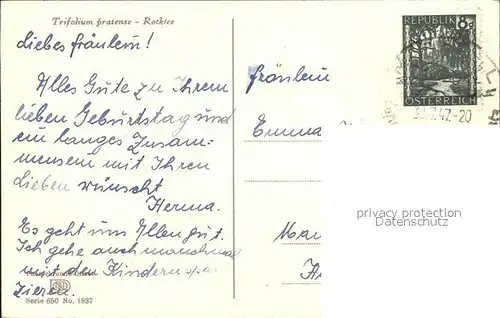 Trifolium pratense - Rotklee
Liebes fräulein!
Alles Gute zu Ihrem
lieben Geburtstag und
ein langes Zusam-
mensein mit Ihren
Lieben wünscht
Herma.
Es geht uns Allen gut.
Ich gehe auch manchmal
mit den Kindern spa-
zieren.
Serie 650 No. 1837
REPUBLIK
8g
ÖSTERREICH
47.-20
fräulein
Emma
privacy protection
Datenschutz